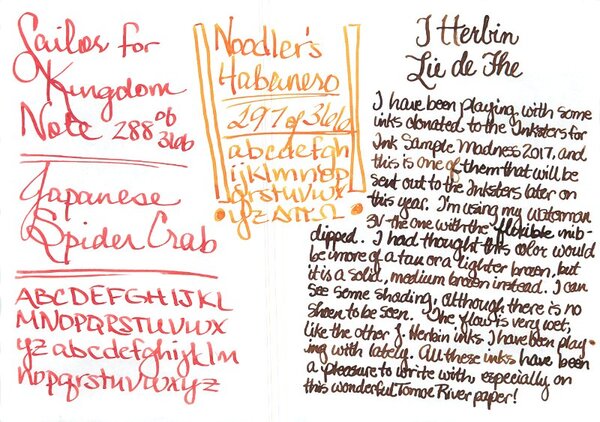 Sailor for
Kingdom
Note 288 of 366
Japanese
Spider Crab
ABCDEFGHIJKL
MNOPQRSTUVWX
YZ abcdefghijklm
nopqrstuvwxyz
Noodler's
Habanero
297 of 366
abcdefgh
ijklmnop
qrstuvwx
yz ΔΠΩ
J Herbin
Lie de The
I have been playing with some
inks donated to the Inksters for
Ink Sample Madness 2017, and
this is one of them that will be
sent out to the Inksters later on
this year. I'm using my Waterman
3V - the one with the flexible nib -
dipped. I had thought this color would
be more of a tan or a lighter brown, but
it is a solid, medium brown instead. I can
see some shading, although there is no
sheen to be seen. The flow is very wet,
like the other J. Herbin inks I have been play-
ing with lately. All these inks have been
a pleasure to write with, especially on
this wonderful Tomoe River paper!